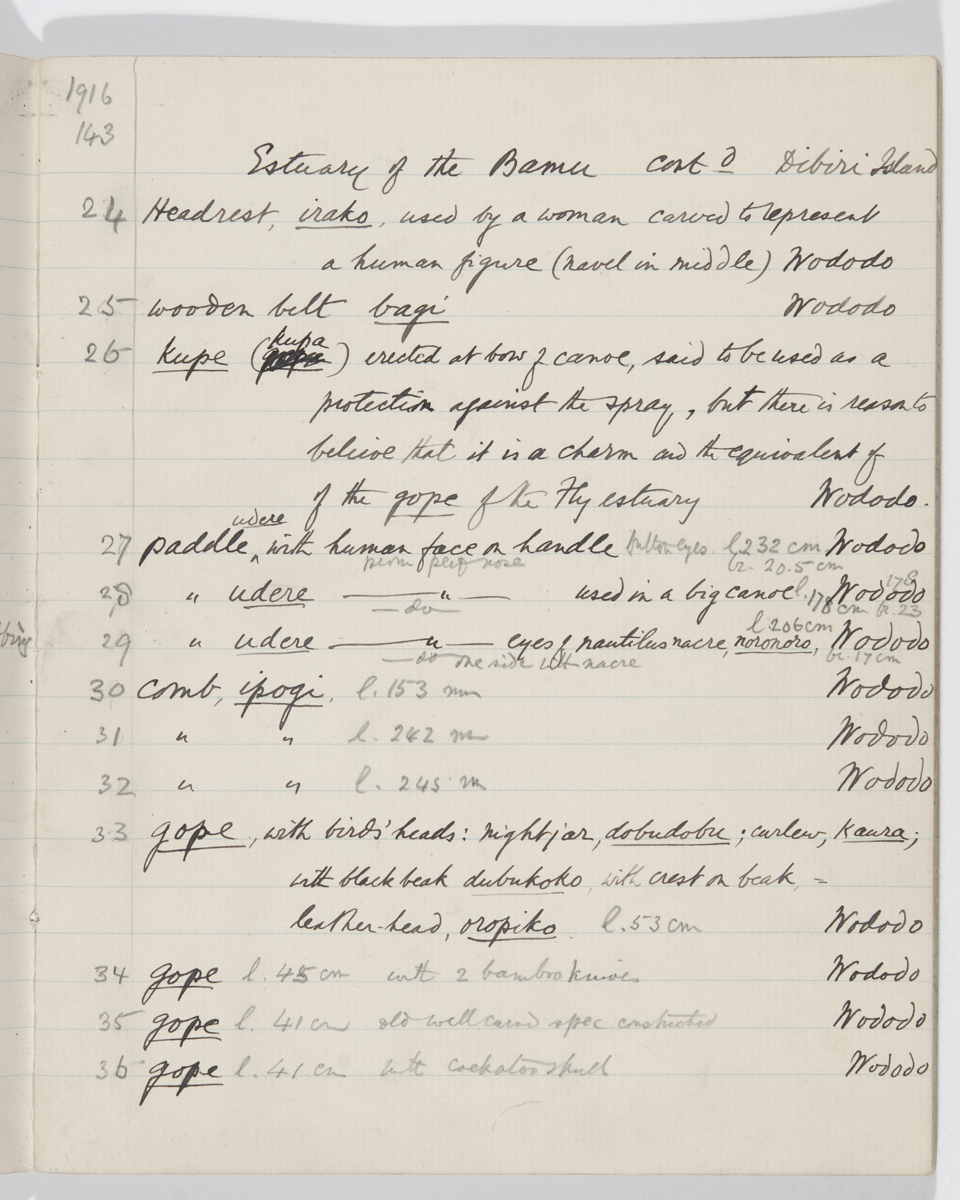 1916
143
Estuary of the Bamu cont d Dibiri Island
24 Headrest, irako, used by a woman carved to represent
a human figure (navel in middle) Wododo
25 wooden belt bagi Wododo
kupa
26 kupe ( ) erected at bow of canoe, said to be used as a
protection against the spray, but there is reason to
believe that it is a charm and the equivalent of
of the gope of the Fly estuary Wododo.
udere
27 paddle, with human face on handle button eyes. l 232 cm Wododo
nose br. 20.5 cm
28 " udere — " — used in a big canoe l. 178 cm Wododo 178
— do — br. 23
l 206 cm
29 " udere — " — eyes of nautilus nacre, noronoro, Wododo
— do one side with nacre br. 17 cm
30 comb, ipogi, l. 153 mm Wododo
31 " " l. 242 mm Wododo
32 " " l. 245 m Wododo
33 gope, with birds' heads: nightjar, dobudobu; curlew, Kaura;
with black beak dubukoko, with crest on beak, =
leather-head, oropiko. l. 53 cm Wododo
34 gope l. 45 cm with 2 bamboo knives Wododo
35 gope l. 41 cm old well carved spec Wododo
36 gope l. 41 cm with cockatoo skull Wododo